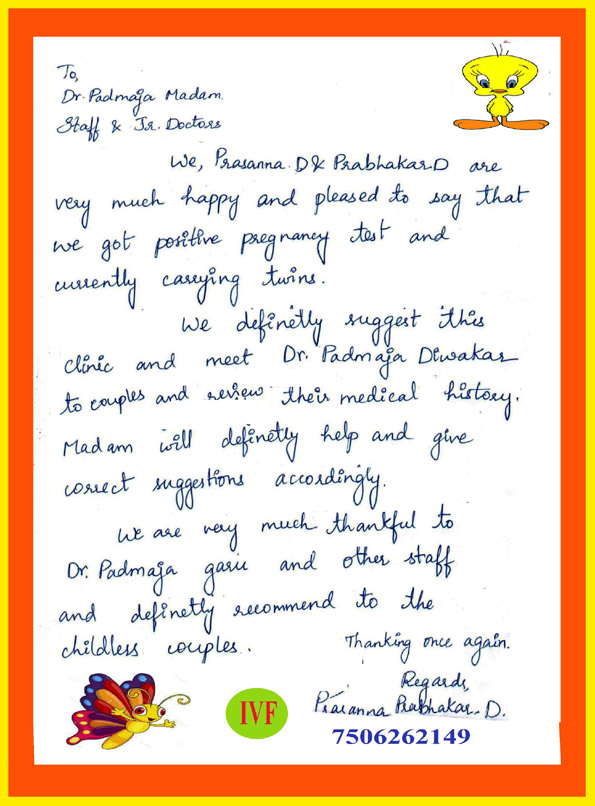 To,
Dr. Padmaja Madam
Staff & Jr. Doctors
We, Prasanna. D & Prabhakar.D are
very much happy and pleased to say that
we got positive pregnancy test and
currently carrying twins.
We definetly suggest this
clinic and meet Dr. Padmaja Diwakar
to couples and review their medical history.
Madam will definetly help and give
correct suggestions accordingly.
We are very much thankful to
Dr. Padmaja garu and other staff
and definetly recommend to the
childless couples.
Thanking once again.
Regards,
Prasanna Prabhakar. D.
IVF
7506262149